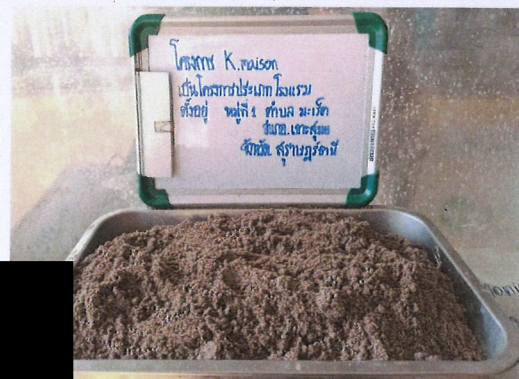 โครงการ K.maison
เป็นโครงการประเภท โรงแรม
ตั้งอยู่ หมู่ที่ 1 ตำบล มะเร็ต
อำเภอ.เกาะสมุย
จังหวัด. สุราษฎร์ธานี